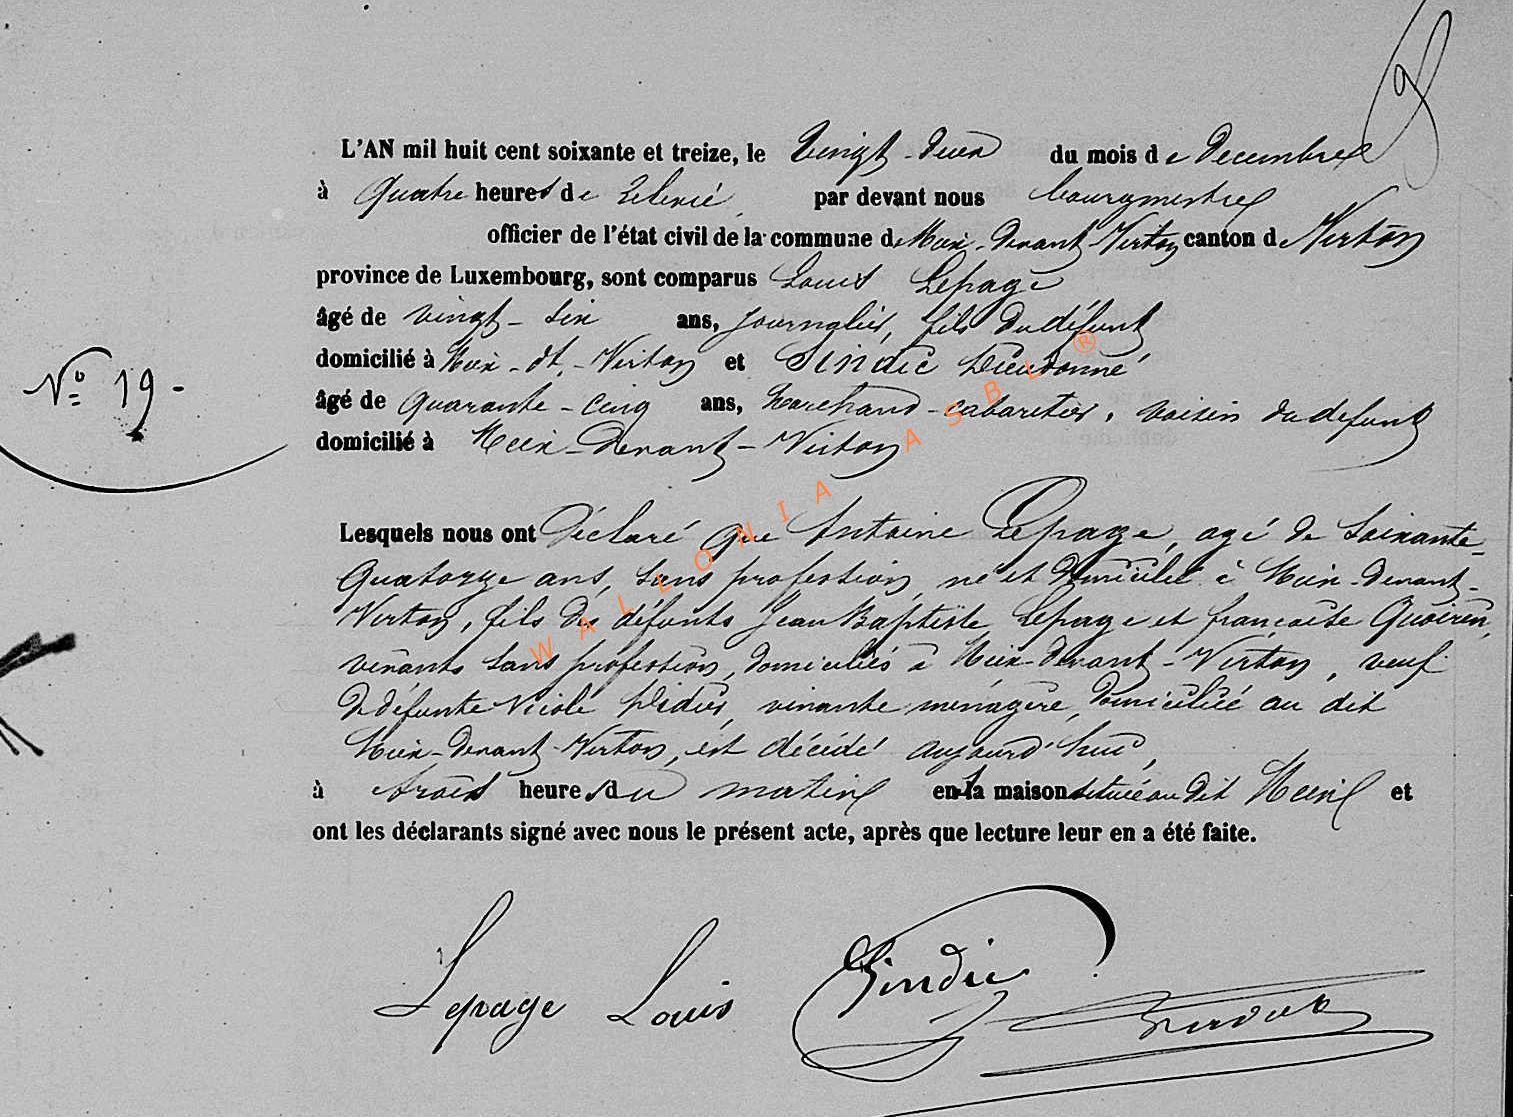 L'AN mil huit cent soixante et treize, le Vingt-deux du mois de Decembre
à Quatre heures de relevée, par devant nous bourgmestre
officier de l'état civil de la commune de Meix-Devant-Virton canton de Virton
province de Luxembourg, sont comparus Louis Lepage
âgé de vingt-six ans, journalier, fils du défunt
domicilié à Meix-dt-Virton et Sindic Dieudonné
âgé de quarante-cinq ans, Marchand-cabaretier, voisin du defunt
domicilié à Meix-Devant-Virton
No 19-
Lesquels nous ont Déclaré que Antoine Lepage, agé de Soixante-
Quatorze ans, sans profession, né et domicilié à Meix-devant-
Virton, fils des défunts Jean Baptiste Lepage et françoise
vivants sans profession, domiciliés à Meix-devant-Virton, veuf
de défunte Nicole Didier, vivante ménagère, domiciliée au dit
Meix-Devant-Virton, est décédé aujourd'hui,
à trois heures du matin en la maison située au dit Meix et
ont les déclarants signé avec nous le présent acte, après que lecture leur en a été faite.
Lepage Louis Sindic
WALLONIA ASBL ®